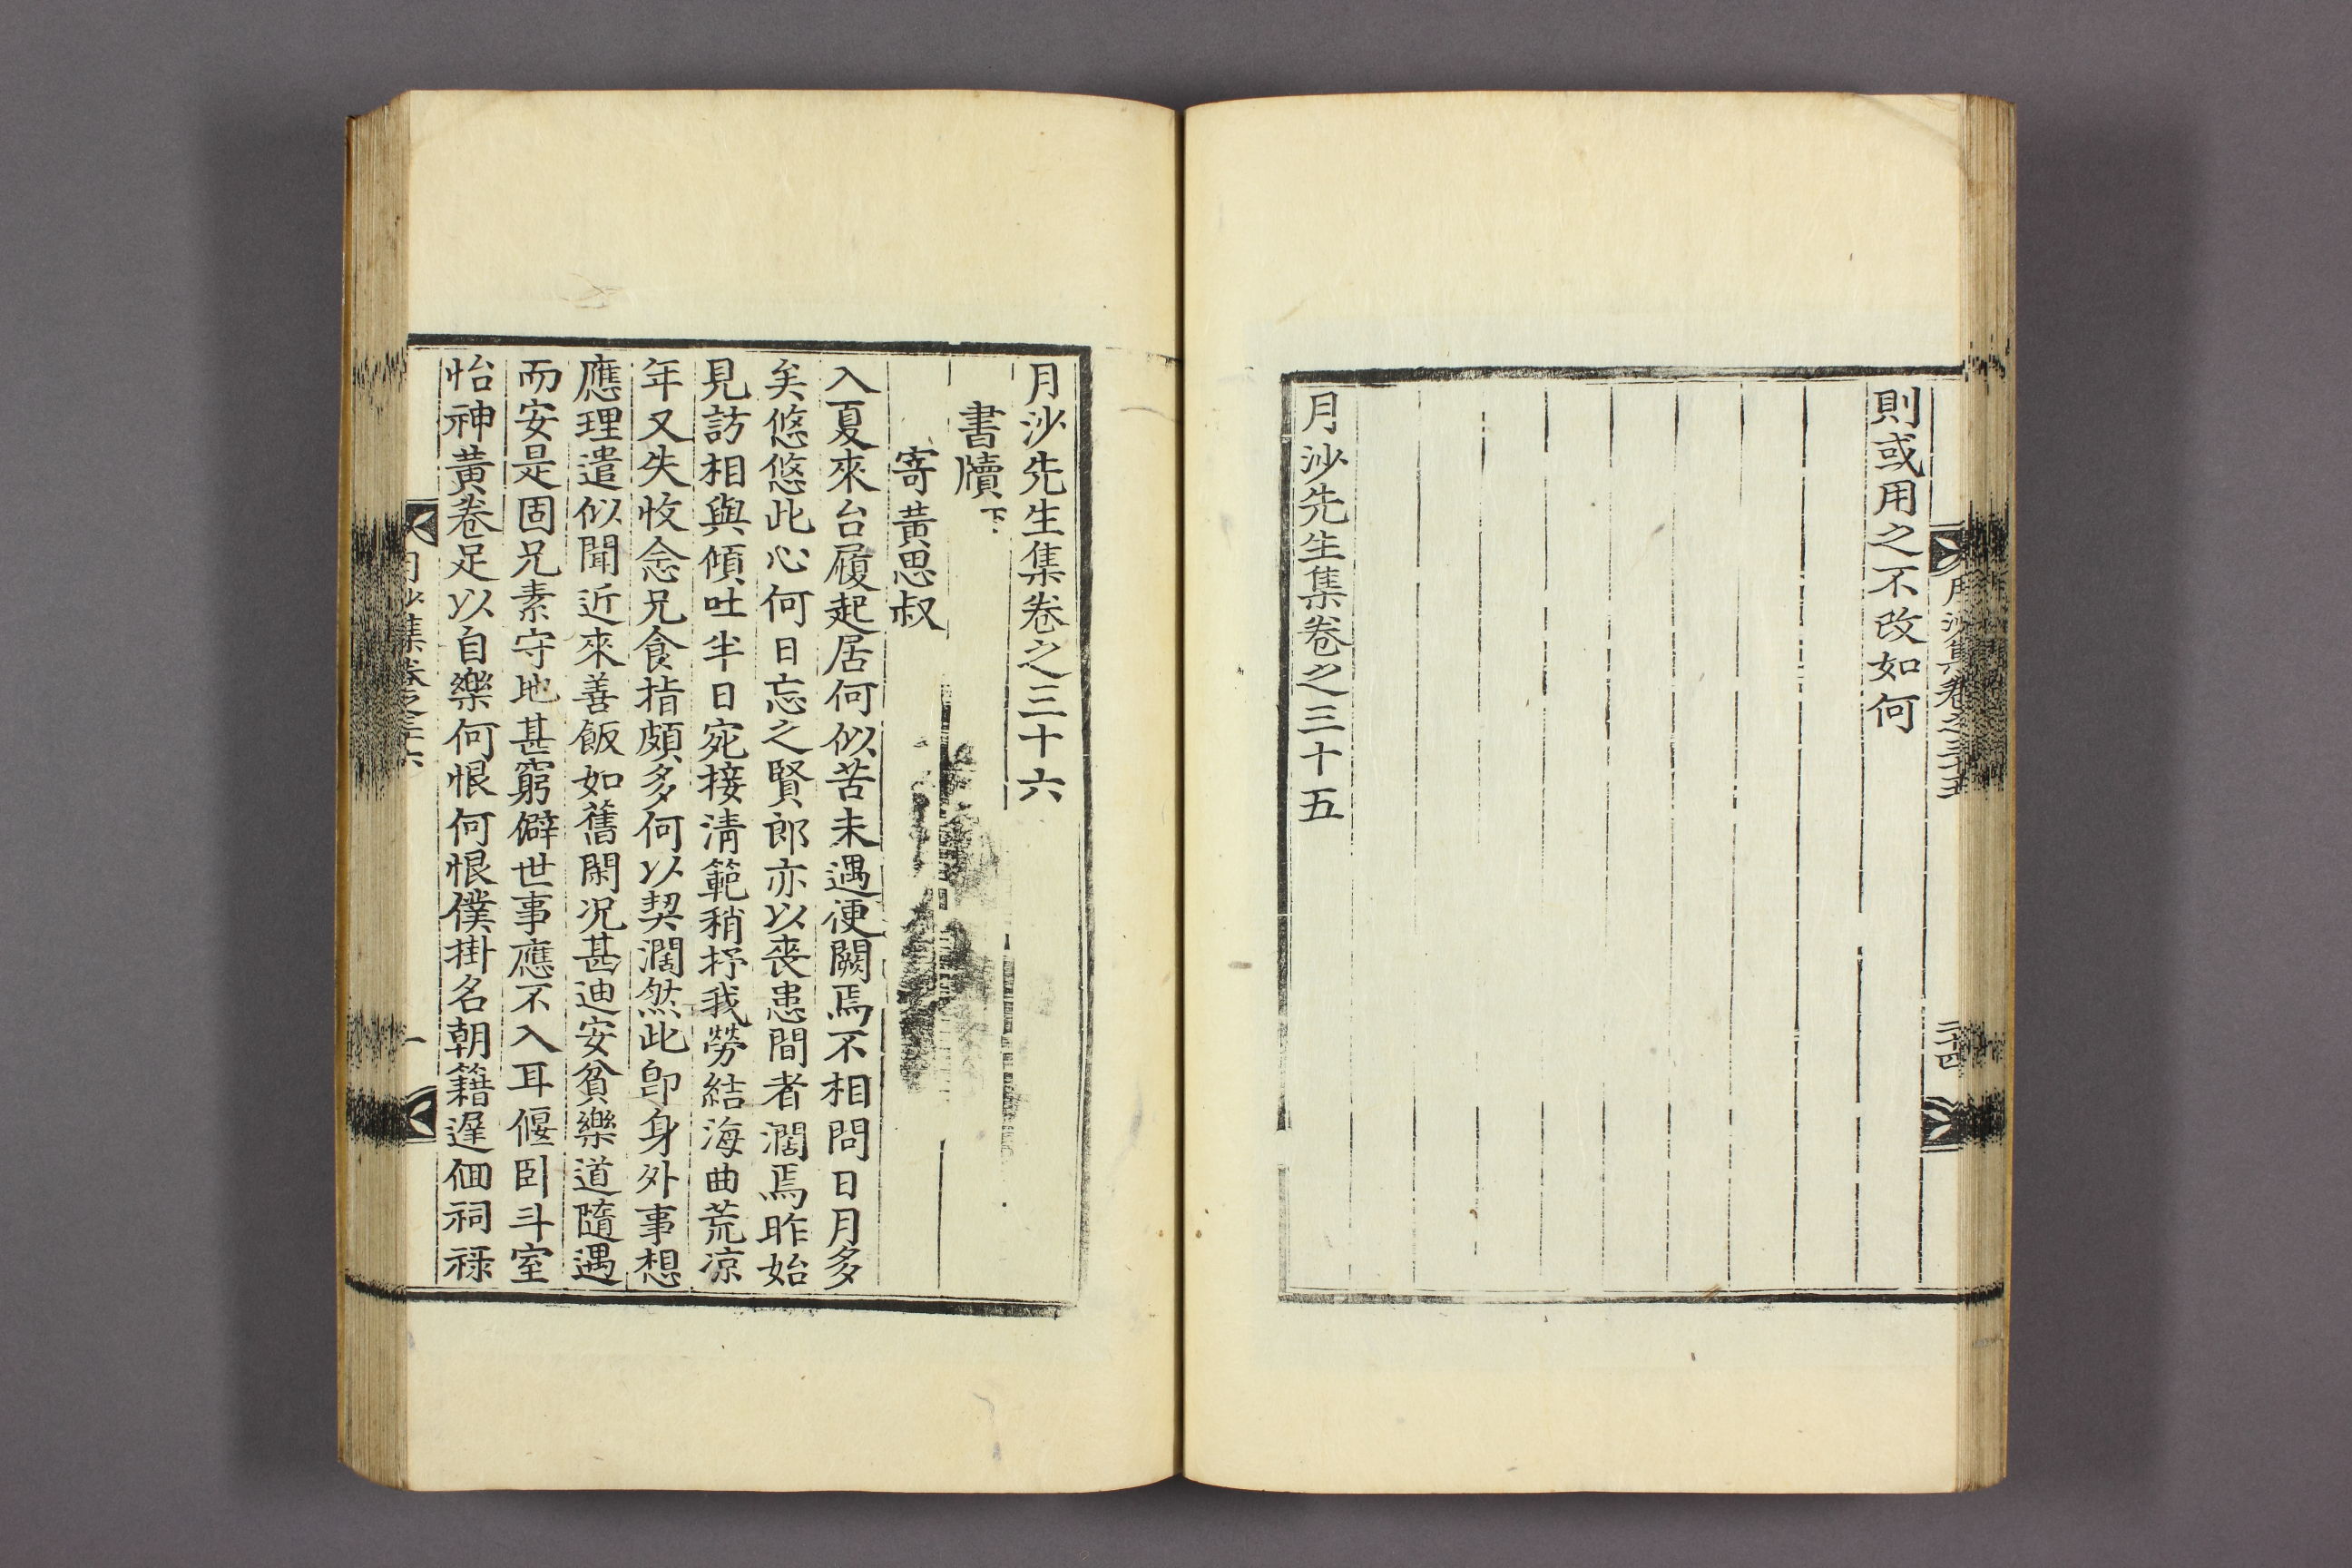 月沙集卷之三十五
三十四
則或用之不改如何
月沙先生集卷之三十五
月沙先生集卷之三十六
書牘下
寄黃思叔
入夏來台履起居何似苦未遇便闕焉不相問日月多
矣悠悠此心何日忘之賢郎亦以喪患間者濶焉昨始
見訪相與傾吐半日宛接淸範稍抒我勞結海曲荒凉
年又失收念兄食指頗多何以契濶然此卽身外事想
應理遣似聞近來善飯如舊閑況甚迪安貧樂道隨遇
而安是固兄素守地甚窮僻世事應不入耳偃臥斗室
怡神黃卷足以自樂何恨何恨僕掛名朝籍遲佪祠祿
月沙集卷之三十六
一